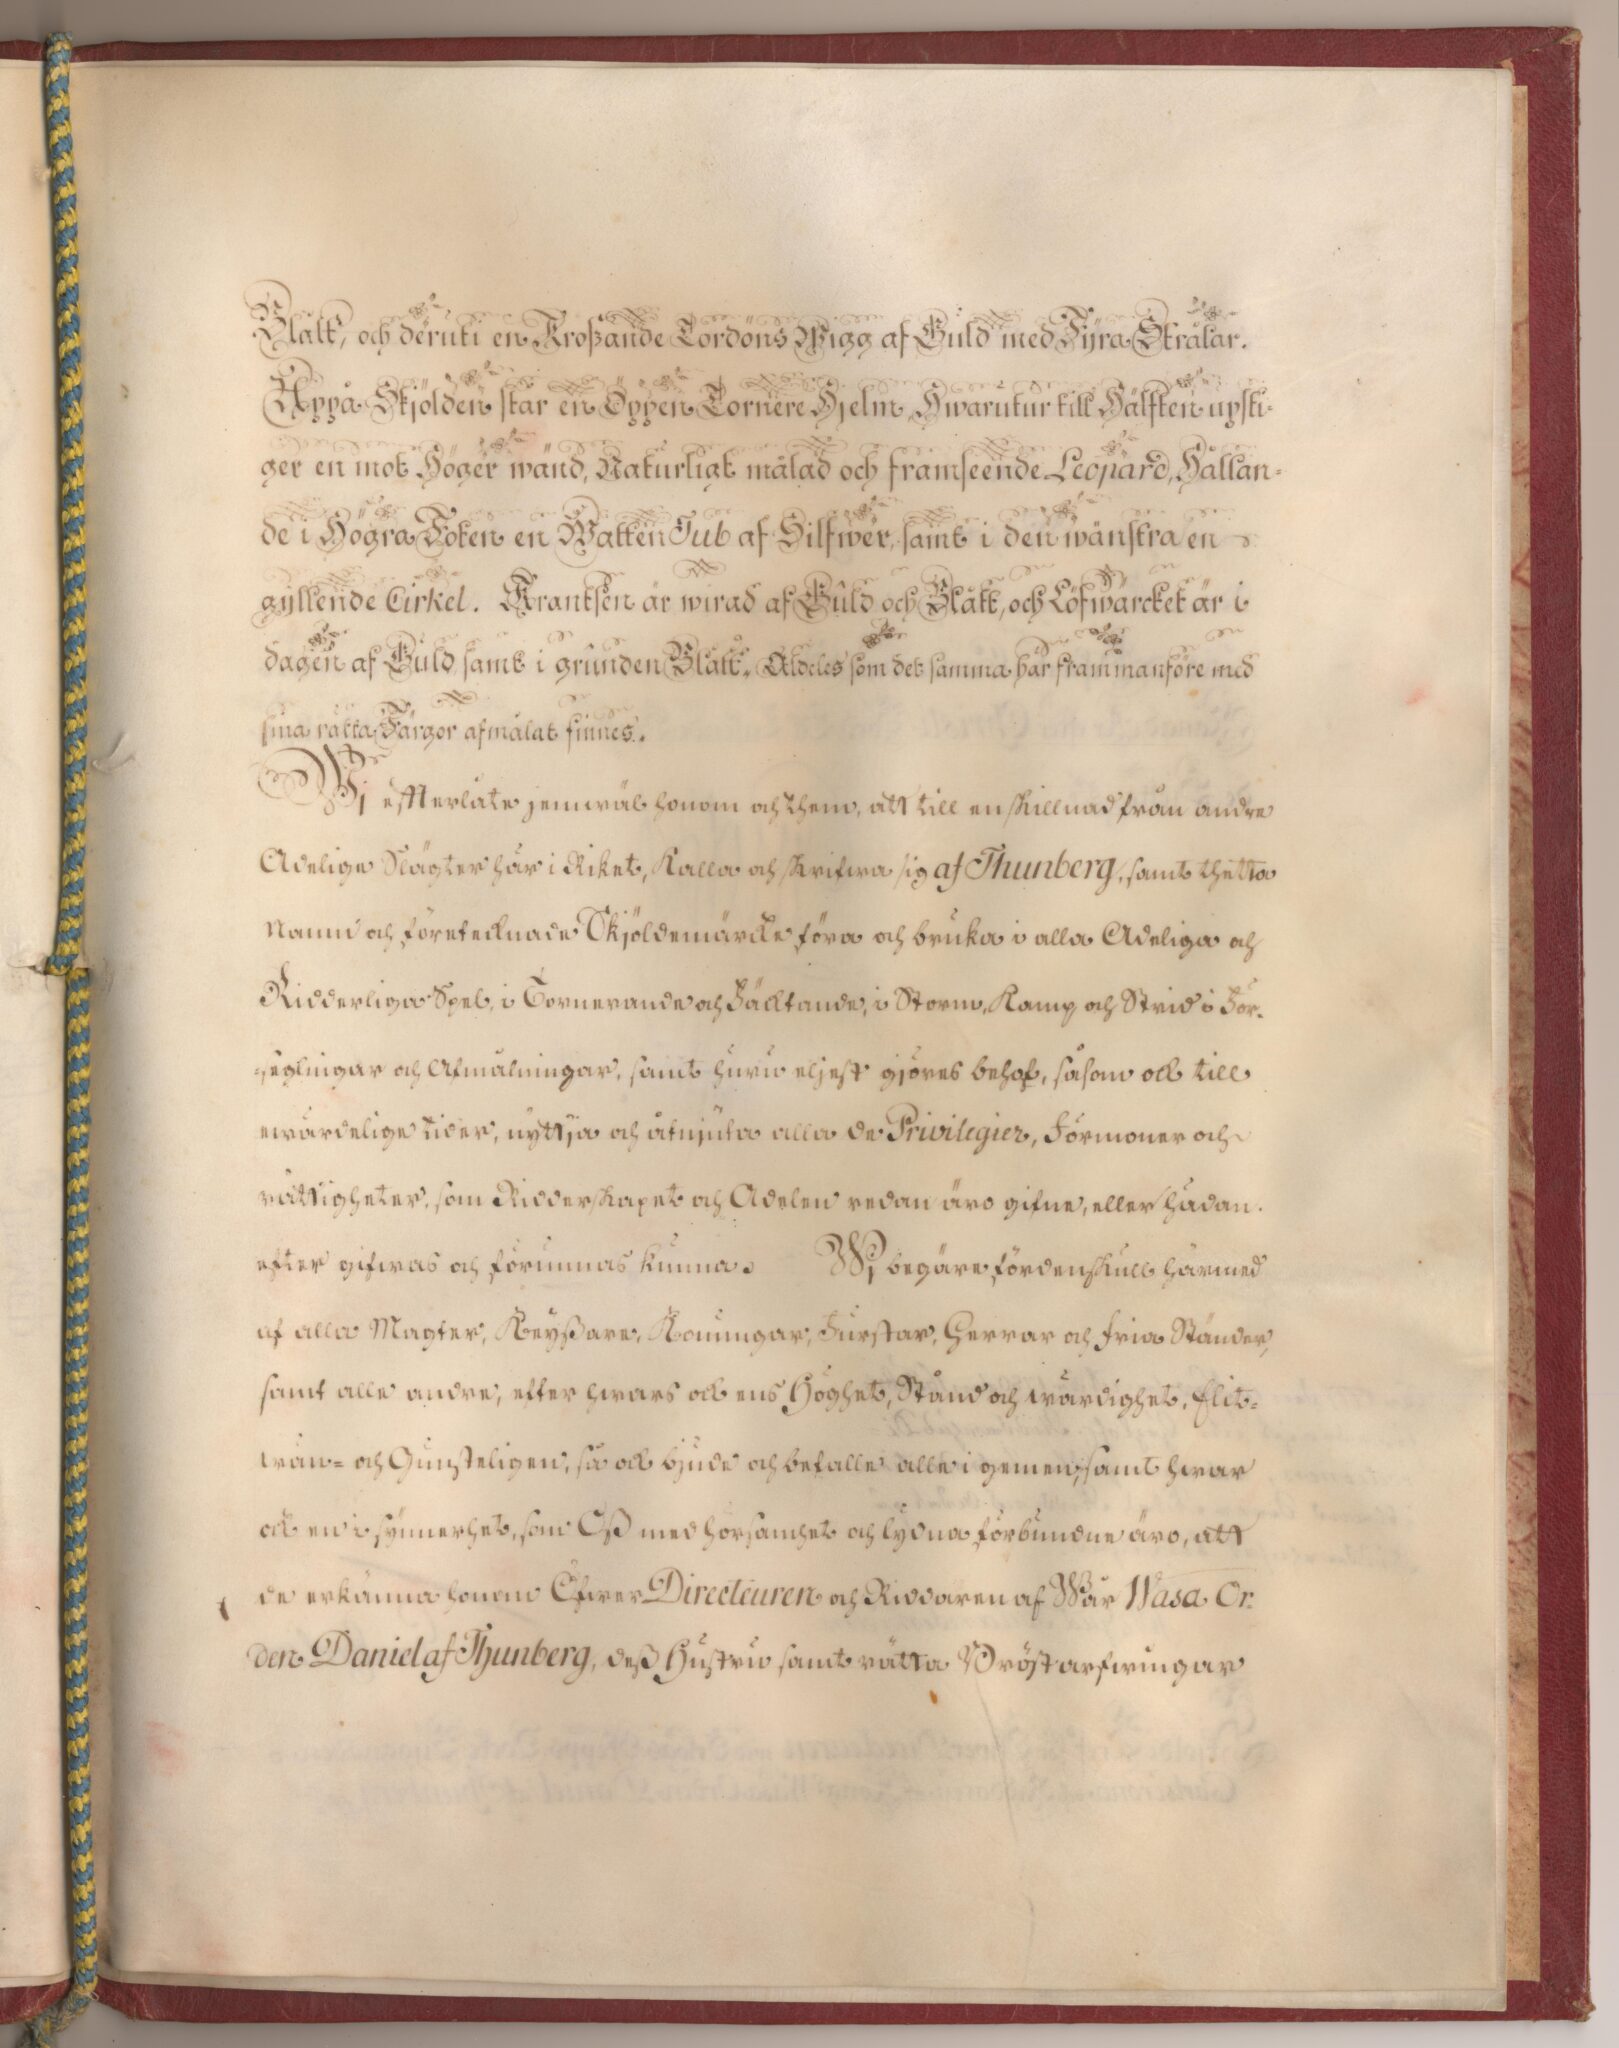 Blått, och deruti en Kroßande Tordöns Wigg af Guld med Fyra Strålar.
Uppå Skjölden står en Öppen Tornere Hjelm, Hwarutur till Hälften upsti-
ger en mot Höger wänd, Naturligt målad och framseende Leopard, Hållan-
de i Högra Foten en Watten Tub af Silfwer, samt i den wänstra en
gyllende Cirkel. Krantsen är wirad af Guld och Blått, och Löfwärcket är i
dagen af Guld samt i grunden Blått. Aldeles som det samma här frammanföre med
sina rätta Färgor afmålat finnes.
Wj efterlåte jemwäl honom och them, att till en skillnad från andre
Adelige Slägter här i Riket, Kalla och skrifwa sig af Thunberg, samt thetta
Namn och företeknade Skjöldemärcke föra och bruka i alla Adeliga och
Ridderliga Spel, i Tornerande och Fäcktande, i Storm, Kamp och Strid i För-
-seglingar och Afmålningar, samt huru eljest gjöres behof, såsom ock till
ewärdelige tider, nyttja och åtnjuta alla de Privilegier, Förmoner och
rättigheter, som Ridderskapet och Adelen redan äro gifne, eller hädan.
efter gifwas och förunnas kunna. Wj begäre fördenskull härmed
af alla Magter, Keyßare, Konungar, Furstar, Herrar och fria Ständer,
samt alle andre, efter hwars ock ens Höghet, Stånd och wärdighet, flit-
wän- och Gunsteligen, så ock bjude och befalle alle i gemen, samt hwar
ock en i synnerhet, som Oß med hörsamhet och lydna förbundne äro, att
de erkänna honom Öfwer Directeuren och Riddaren af Wår Wasa Or-
den Daniel af Thunberg, deß Hustru samt rätta Bröstarfwingar